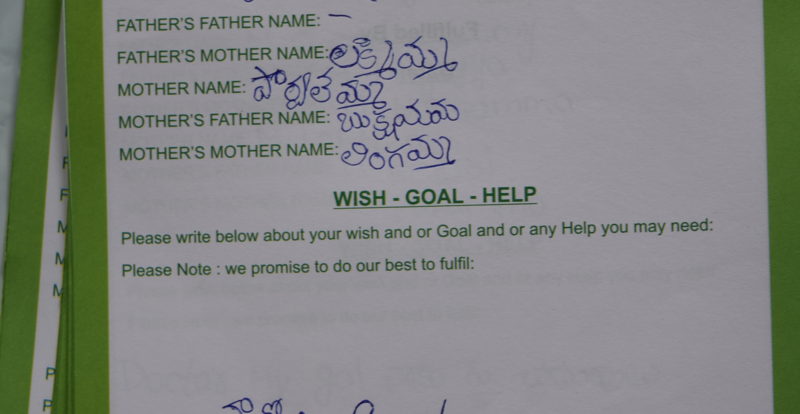 FATHER'S FATHER NAME: –
FATHER'S MOTHER NAME: లక్ష్మమ్మ
MOTHER NAME: పార్వతమ్మ
MOTHER'S FATHER NAME:
MOTHER'S MOTHER NAME: లింగమ్మ
WISH - GOAL - HELP
Please write below about your wish and or Goal and or any Help you may need:
Please Note : we promise to do our best to fulfil: